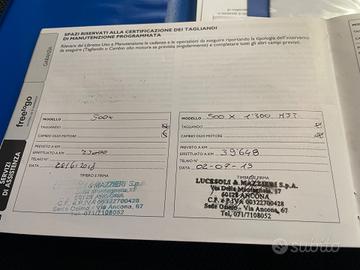 SPAZI RISERVATI ALLA CERTIFICAZIONE DEI TAGLIANDI
DI MANUTENZIONE PROGRAMMATA
Rilevare dal Libretto Uso e Manutenzione le cadenze e le operazioni da eseguire riportando la tipologia dell'intervento
da eseguire (Tagliando o Cambio olio motore se prevista singolarmente) e completare tutti gli altri campi previsti.
freetogo
GARANZIA
SERVIZI
DI ASSISTENZA
MODELLO 500X
TAGLIANDO
CAMBIO OLIO MOTORE
PREVISTO A KM
EFFETTUATO A KM
TELAIO N°
DATA
TIMBRO E FIRMA
LUCESOLI & MAZZIERI S.p.A.
60131 ANCONA
C.F. e P.IVA 00322700428
Sede Osimo - Via Ancona, 67
Tel. 071/7108052
MODELLO 500 X 1300 MJT
TAGLIANDO
CAMBIO OLIO MOTORE
PREVISTO A KM
EFFETTUATO A KM 39648
TELAIO N°
DATA 02-07-19
TIMBRO E FIRMA
LUCESOLI & MAZZIERI S.p.A.
60131 ANCONA
C.F. e P.IVA 00322700428
Sede Osimo - Via Ancona, 67
Tel. 071/7108052
subito